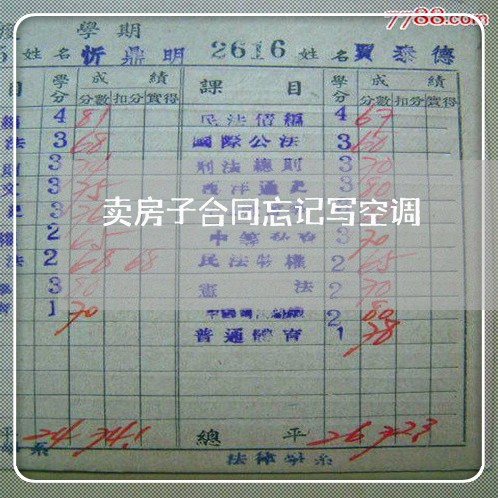 7788.com
學期
姓名 忻鼎明 2616 姓名 賈泰德
目 學分 成績 課目 學分 成績
分數 扣分 實得 分數 扣分 實得
4 81 民法債編 4 67
法 3 68 國際公法 3 60
3 刑法總則 3 70
3 75 西洋通史 3 80
卖房子合同忘记写空调
2 65 3 70
法 2 68 68 民法物權 2 65
3 80 憲法 2 70
1 70 2 80
普通體育 1 78
平 24 74.1 總平 26 72.3
系 法律學系